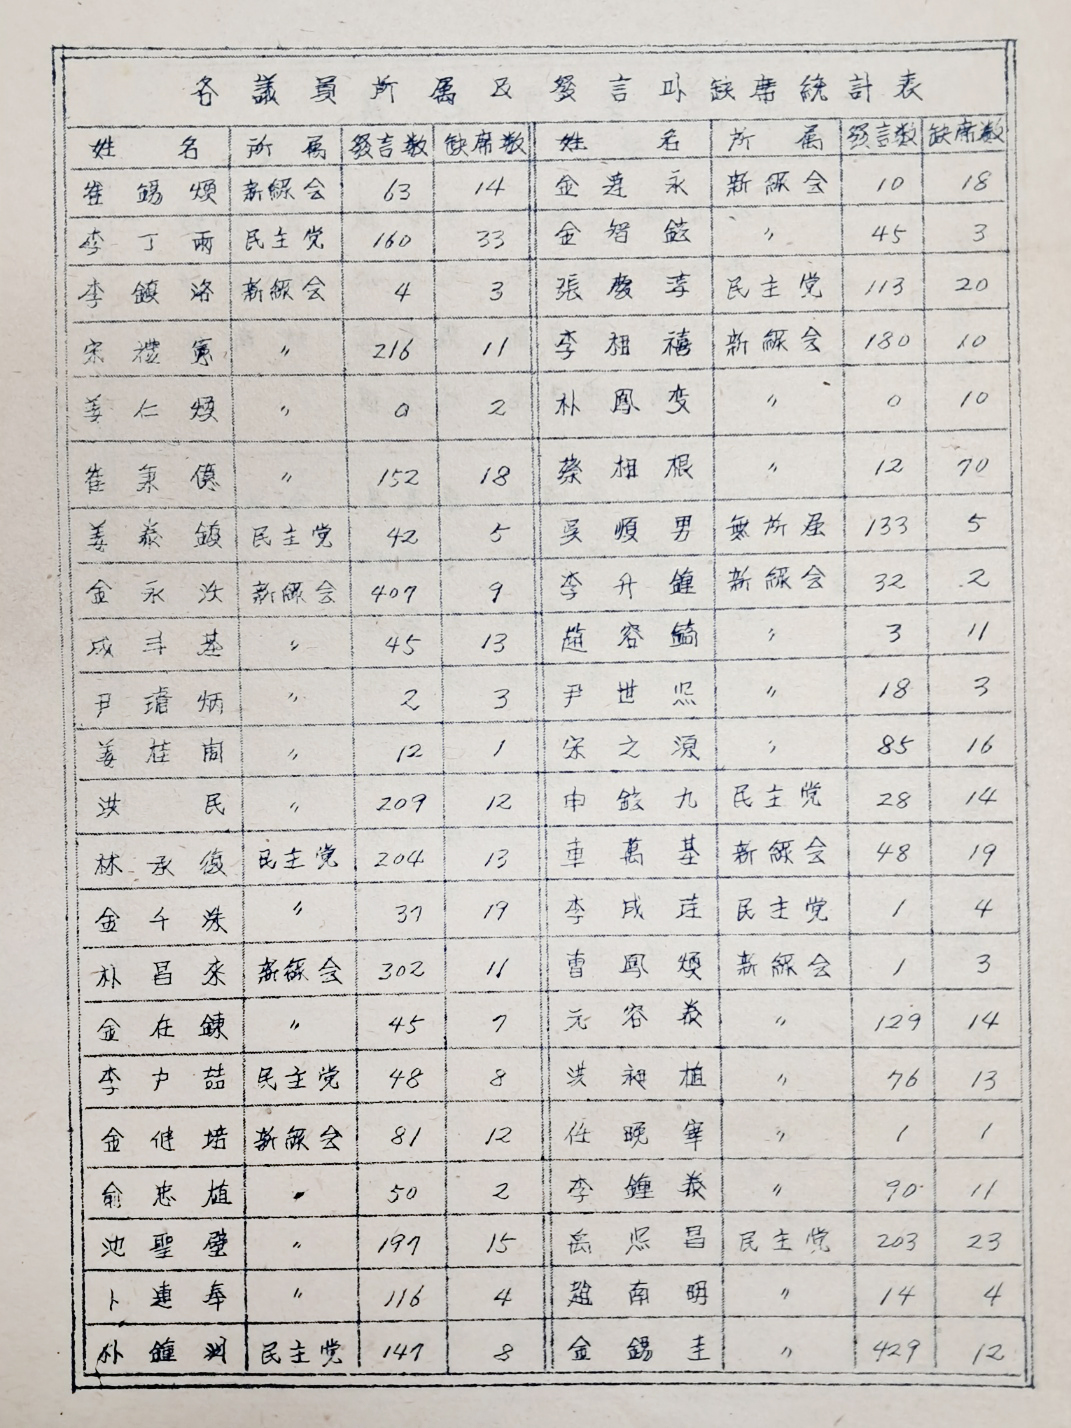 各議員所属及發言과缺席統計表
姓名 所属 發言数 缺席数 姓名 所属 發言数 缺席数
崔錫煩 新綠会 63 14 金連永 新綠会 10 18
李丁雨 民主党 160 33 金智鉉 〃 45 3
李鎮洛 新綠会 4 3 張慶淳 民主党 113 20
宋禮憲 〃 216 11 李相禧 新綠会 180 10
姜仁煩 〃 0 2 朴鳳変 〃 0 10
崔秉億 〃 152 18 蔡相根 〃 12 70
姜泰鎮 民主党 42 5 吳順男 無所屋 133 5
金永汝 新綠会 407 9 李升鍾 新綠会 32 2
成斗基 〃 45 13 趙容鎬 〃 3 11
尹 炳 〃 2 3 尹世熙 〃 18 3
姜桂周 〃 12 1 宋之源 〃 85 16
洪民 〃 209 12 申鉉九 民主党 28 14
林承復 民主党 204 13 車萬基 新綠会 48 19
金千洙 〃 37 19 李成珪 民主党 1 4
朴昌來 新綠会 302 11 曺鳳煩 新綠会 1 3
金在鍊 〃 45 7 元容義 〃 129 14
李 喆 民主党 48 8 洪昶植 〃 76 13
金健培 新綠会 81 12 任晚宰 〃 1 1
俞忠植 〃 50 2 李鍾義 〃 90 11
池聖瑩 〃 197 15 禹熙昌 民主党 203 23
卜連奉 〃 116 4 趙南明 〃 14 4
朴鍾 民主党 147 8 金錫圭 〃 429 12